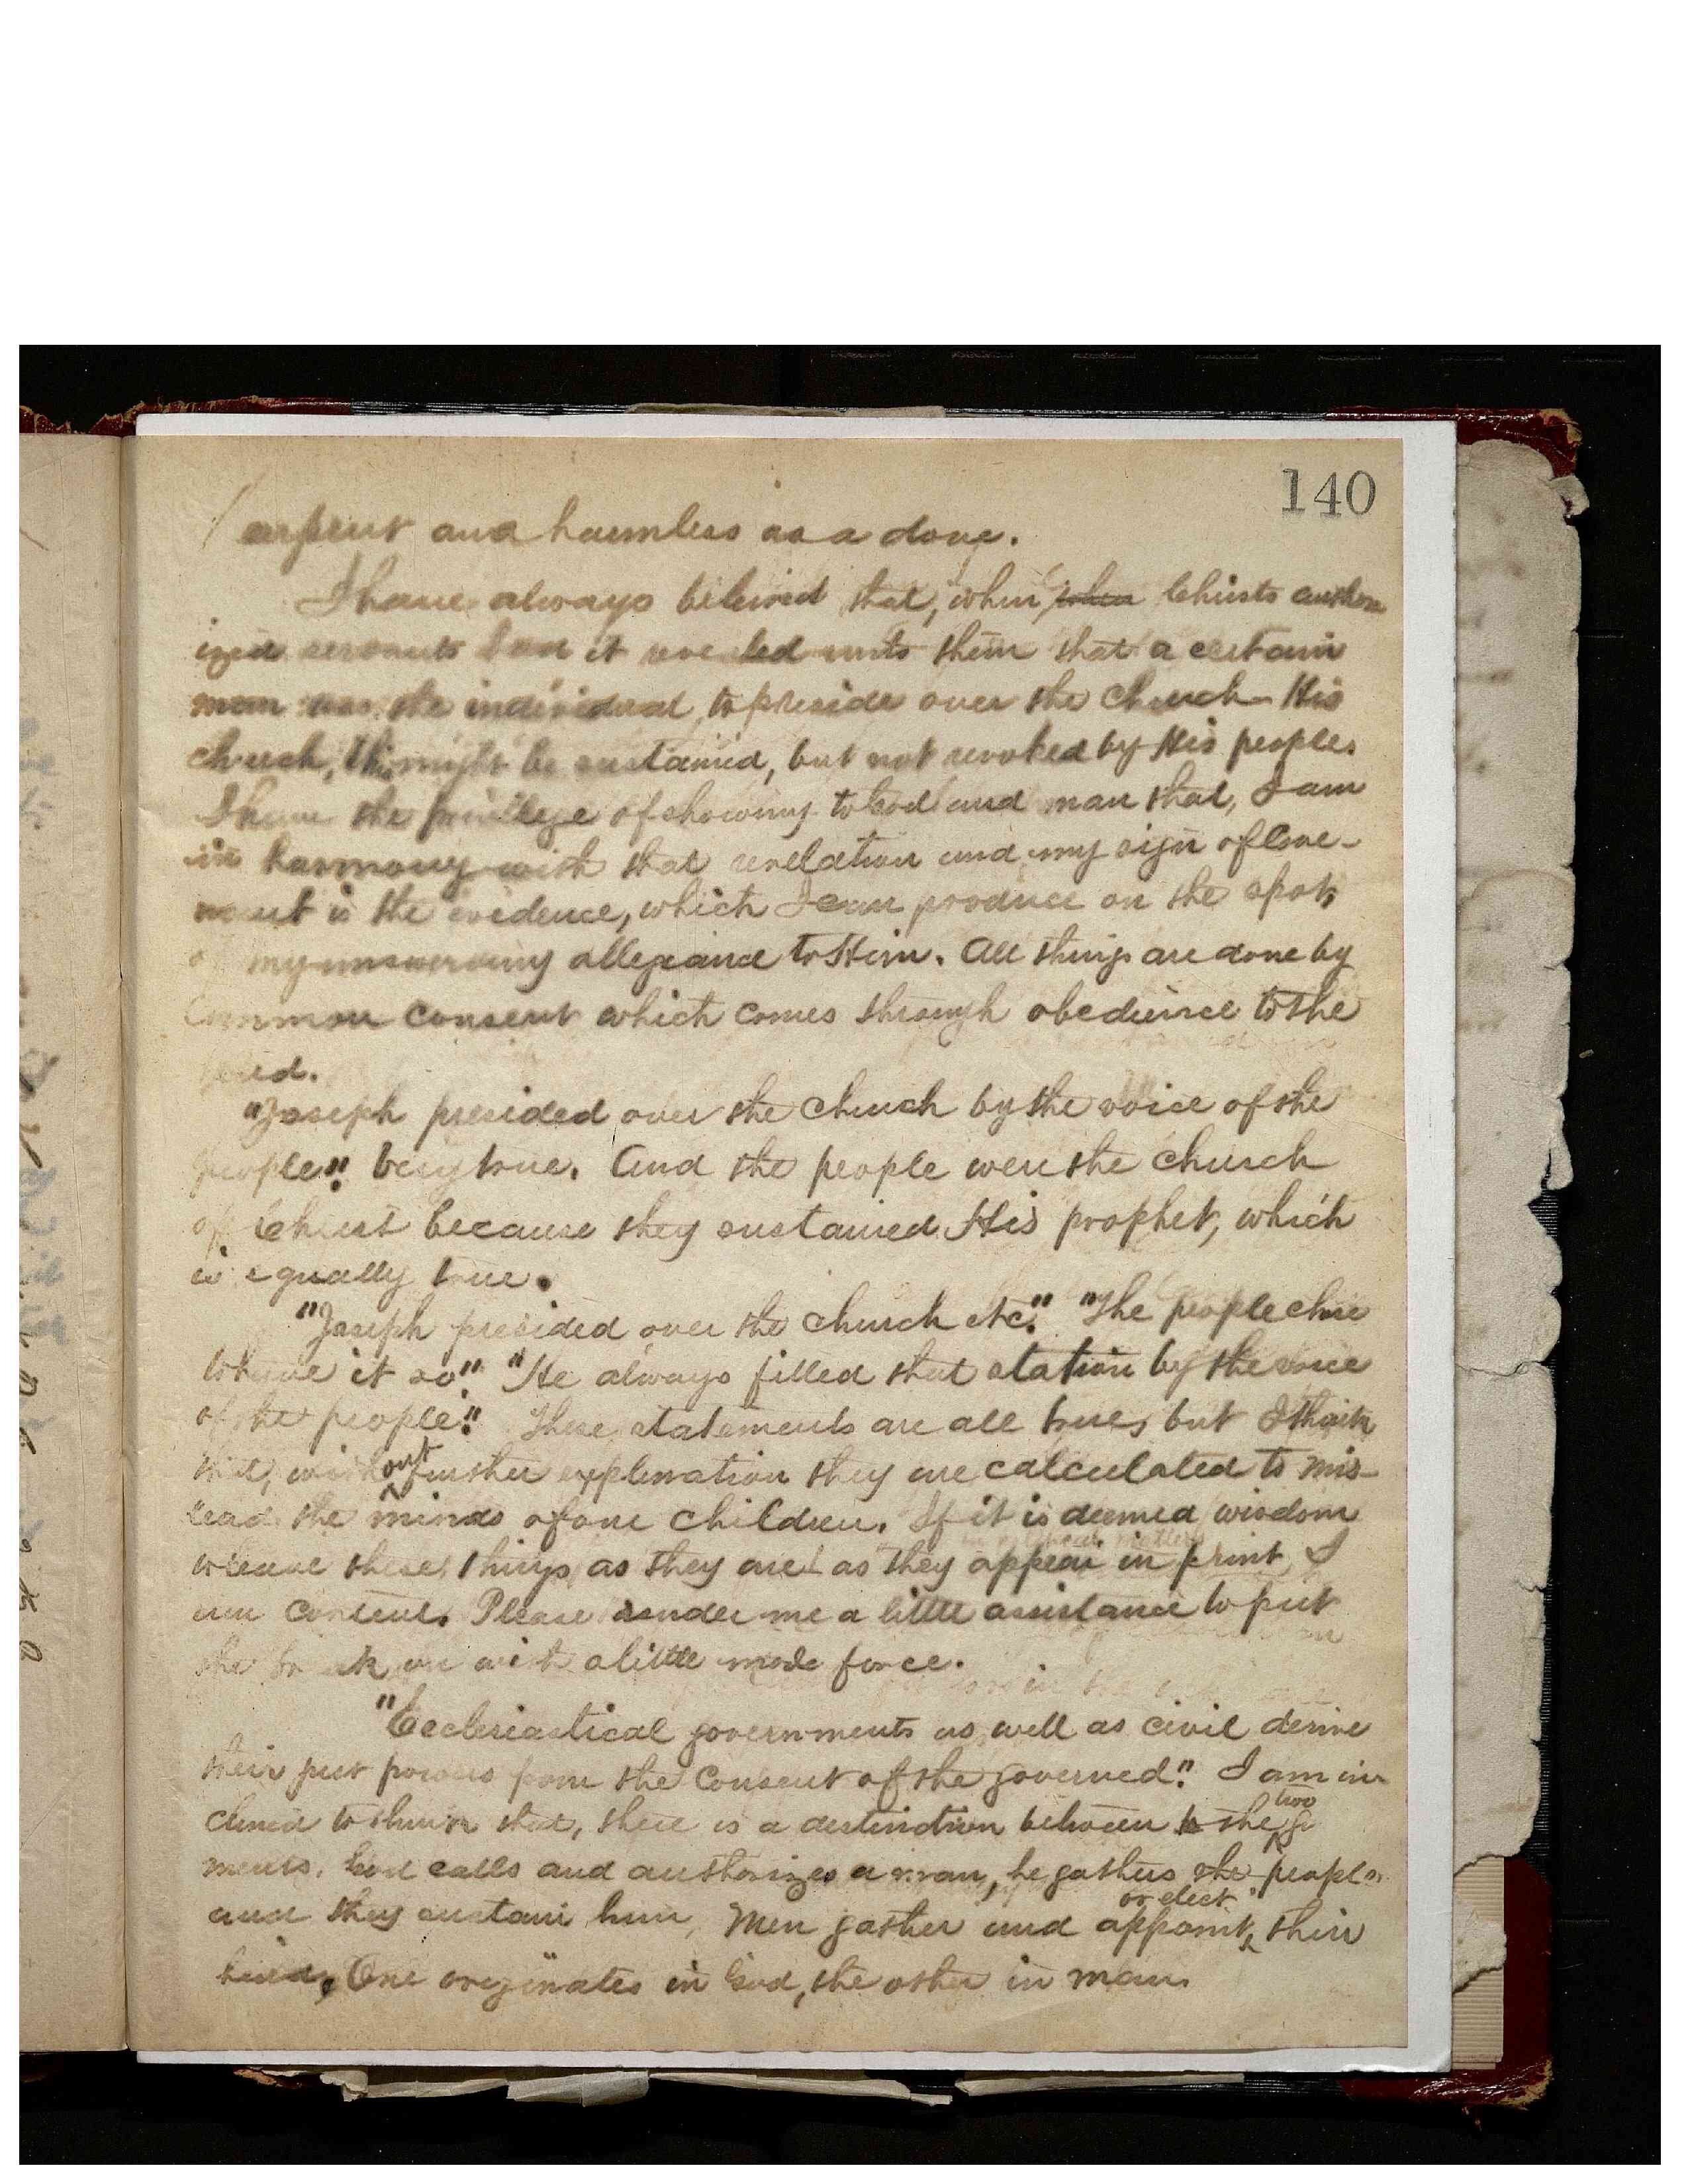 140
serpent and harmless as a dove.
I have always believed that, when when Christs author
ized servants had it revealed unto them that a certain
man was the individual to preside over the Church - His
church, this might be sustained, but not revoked by His people.
I have the privilege of showing to God and man that, I am
in harmony with that revelation and my sign of cove-
nant is the evidence, which I can produce on the spot,
of my unswerving allegiance to Him. All things are done by
Common consent which comes through obedience to the
"Joseph presided over the church by the voice of the
people." Very true. And the people were the church
of Christ because they sustained His prophet, which
is equally true.
"Joseph presided over the church etc." "The people chose
to have it so." "He always filled that station by the voice
of the people." These statements are all true, but I think
that, without further explenation they are calculated to mis-
lead the minds of our children. If it is deemed wisdom
to leave these things as they are as they appear in print, I
am content. Please render me a little assistance to put
the on with a little more force.
"Ecclesiastical governments as well as civil derive
their just powers from the consent of the governed." I am in-
clined to think that, there is a destinction between the two
ments. God calls and authorizes a man, he gathers the people
and they sustain him, Men gather and appoint or elect their
One originates in God, the other in man.